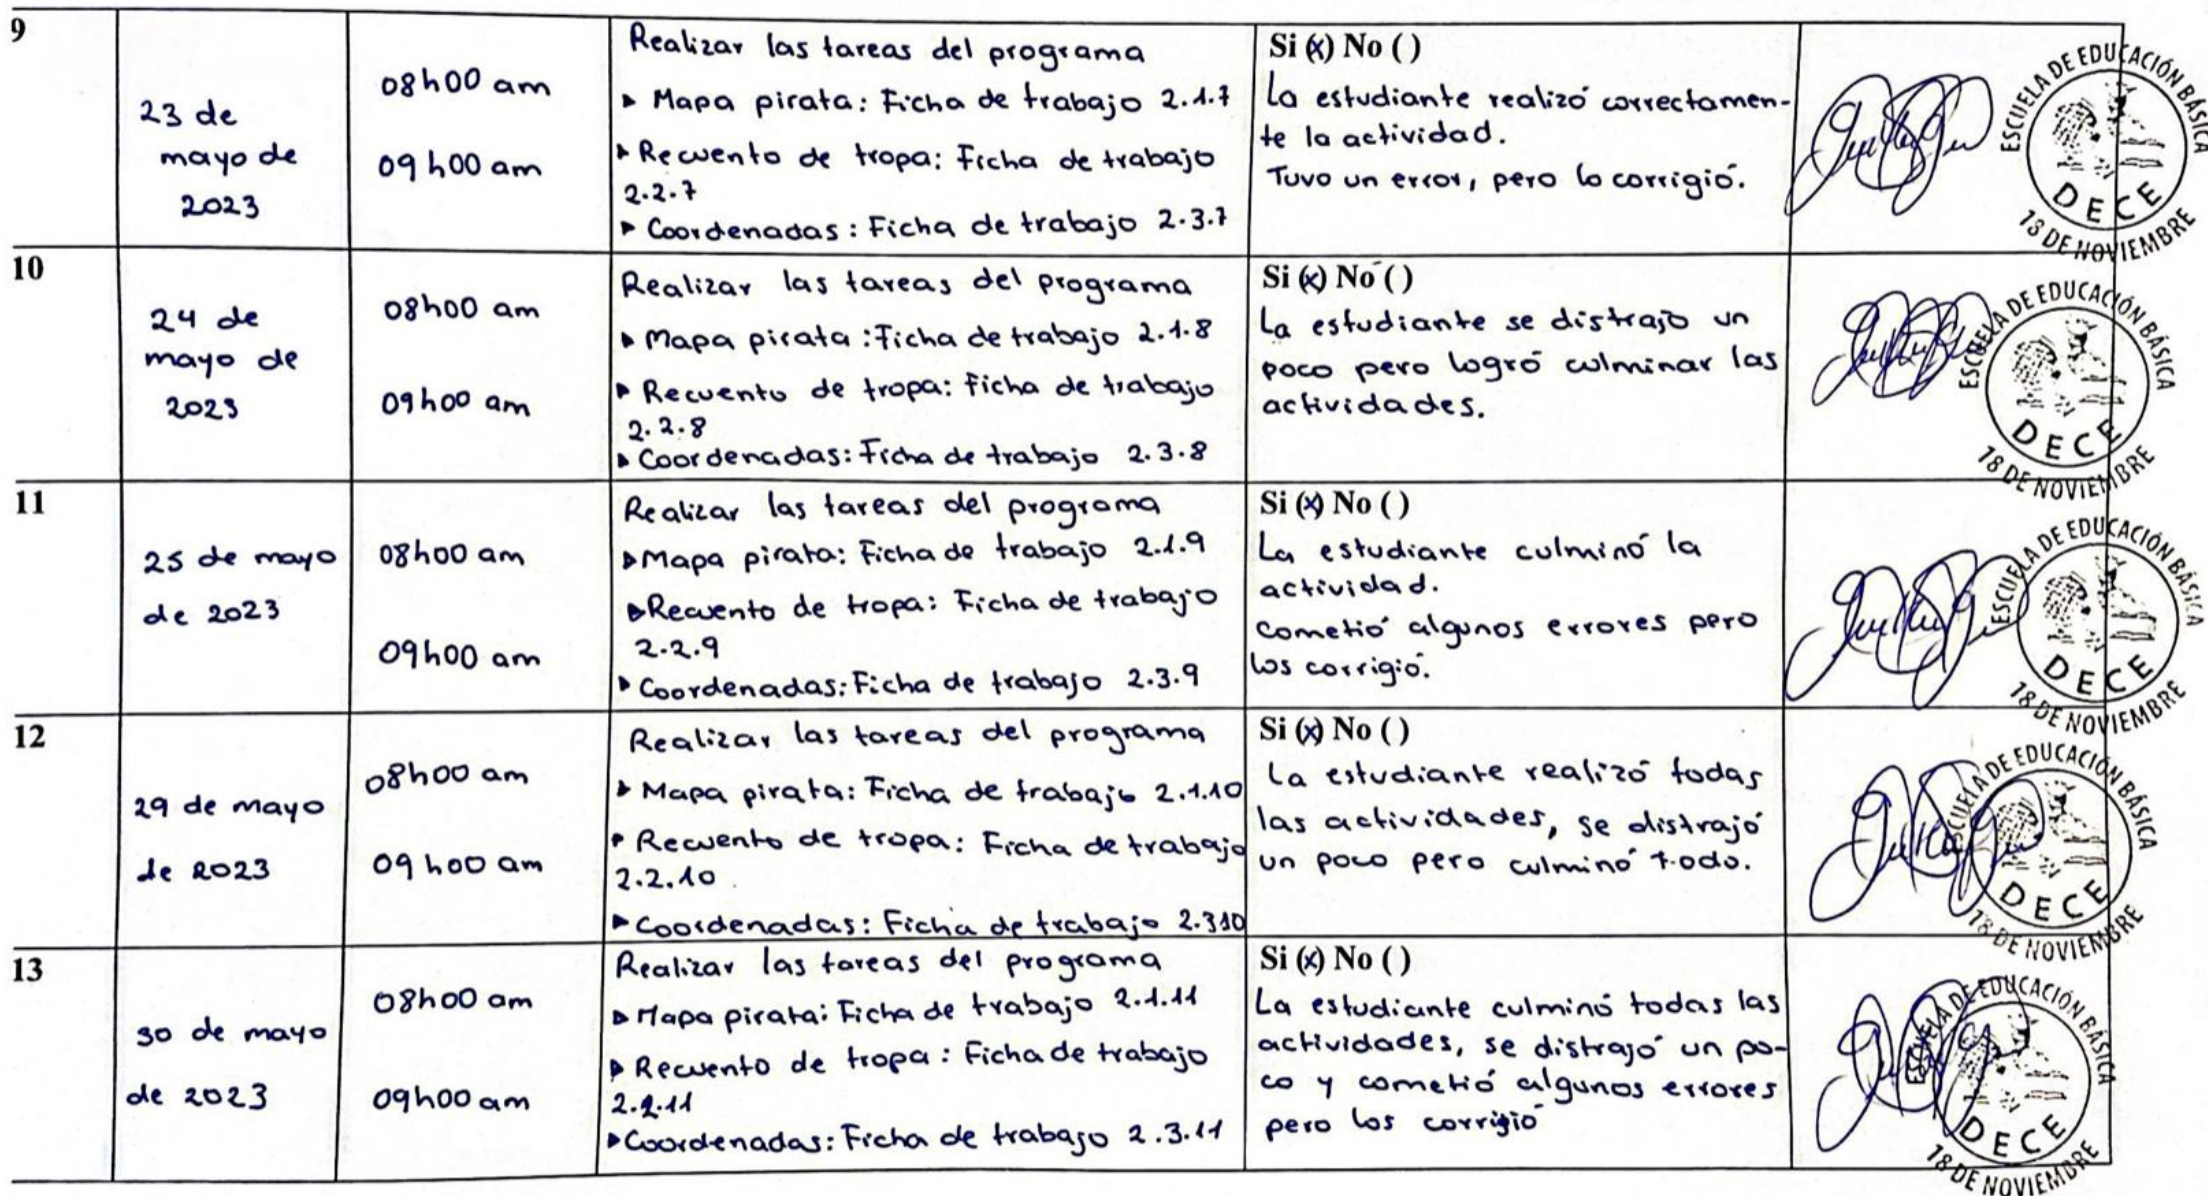 9
23 de
mayo de
2023
08h00 am
09h00 am
Realizar las tareas del programa
▸ Mapa pirata: Ficha de trabajo 2.1.7
▸ Recuento de tropa: Ficha de trabajo
2.2.7
▸ Coordenadas: Ficha de trabajo 2.3.7
Si (x) No ( )
La estudiante realizó correctamen-
te la actividad.
Tuvo un error, pero lo corrigió.
ESCUELA DE EDUCACIÓN BÁSICA
DECE
18 DE NOVIEMBRE
10
24 de
mayo de
2023
08h00 am
09h00 am
Realizar las tareas del programa
▸ Mapa pirata: Ficha de trabajo 2.1.8
▸ Recuento de tropa: Ficha de trabajo
2.2.8
▸ Coordenadas: Ficha de trabajo 2.3.8
Si (x) No ( )
La estudiante se distrajo un
poco pero logró culminar las
actividades.
ESCUELA DE EDUCACIÓN BÁSICA
DECE
18 DE NOVIEMBRE
11
25 de mayo
de 2023
08h00 am
09h00 am
Realizar las tareas del programa
▸ Mapa pirata: Ficha de trabajo 2.1.9
▸ Recuento de tropa: Ficha de trabajo
2.2.9
▸ Coordenadas: Ficha de trabajo 2.3.9
Si (x) No ( )
La estudiante culminó la
actividad.
Cometió algunos errores pero
los corrigió.
ESCUELA DE EDUCACIÓN BÁSICA
DECE
18 DE NOVIEMBRE
12
29 de mayo
de 2023
08h00 am
09h00 am
Realizar las tareas del programa
▸ Mapa pirata: Ficha de trabajo 2.1.10
▸ Recuento de tropa: Ficha de trabajo
2.2.10
▸ Coordenadas: Ficha de trabajo 2.310
Si (x) No ( )
La estudiante realizó todas
las actividades, se distrajó
un poco pero culminó todo.
ESCUELA DE EDUCACIÓN BÁSICA
DECE
18 DE NOVIEMBRE
13
30 de mayo
de 2023
08h00 am
09h00 am
Realizar las tareas del programa
▸ Mapa pirata: Ficha de trabajo 2.1.11
▸ Recuento de tropa: Ficha de trabajo
2.2.11
▸ Coordenadas: Ficha de trabajo 2.3.11
Si (x) No ( )
La estudiante culminó todas las
actividades, se distrajó un po-
co y cometió algunos errores
pero los corrigió
ESCUELA DE EDUCACIÓN BÁSICA
DECE
18 DE NOVIEMBRE